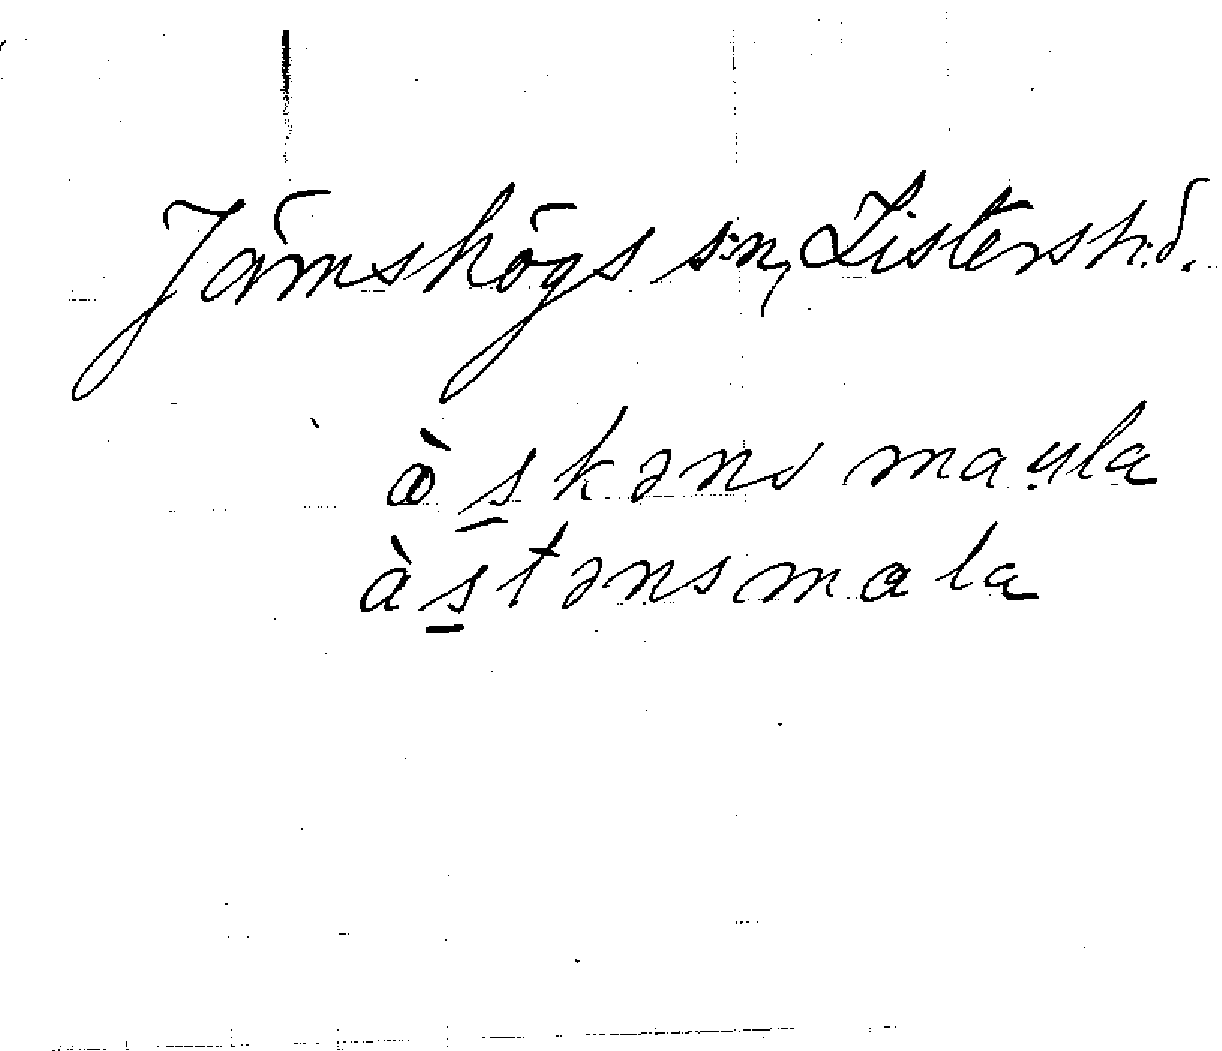 Jämshögs s:n, Listers h:d.
å̀s̲kəns mau̯la
às̲tənsmala